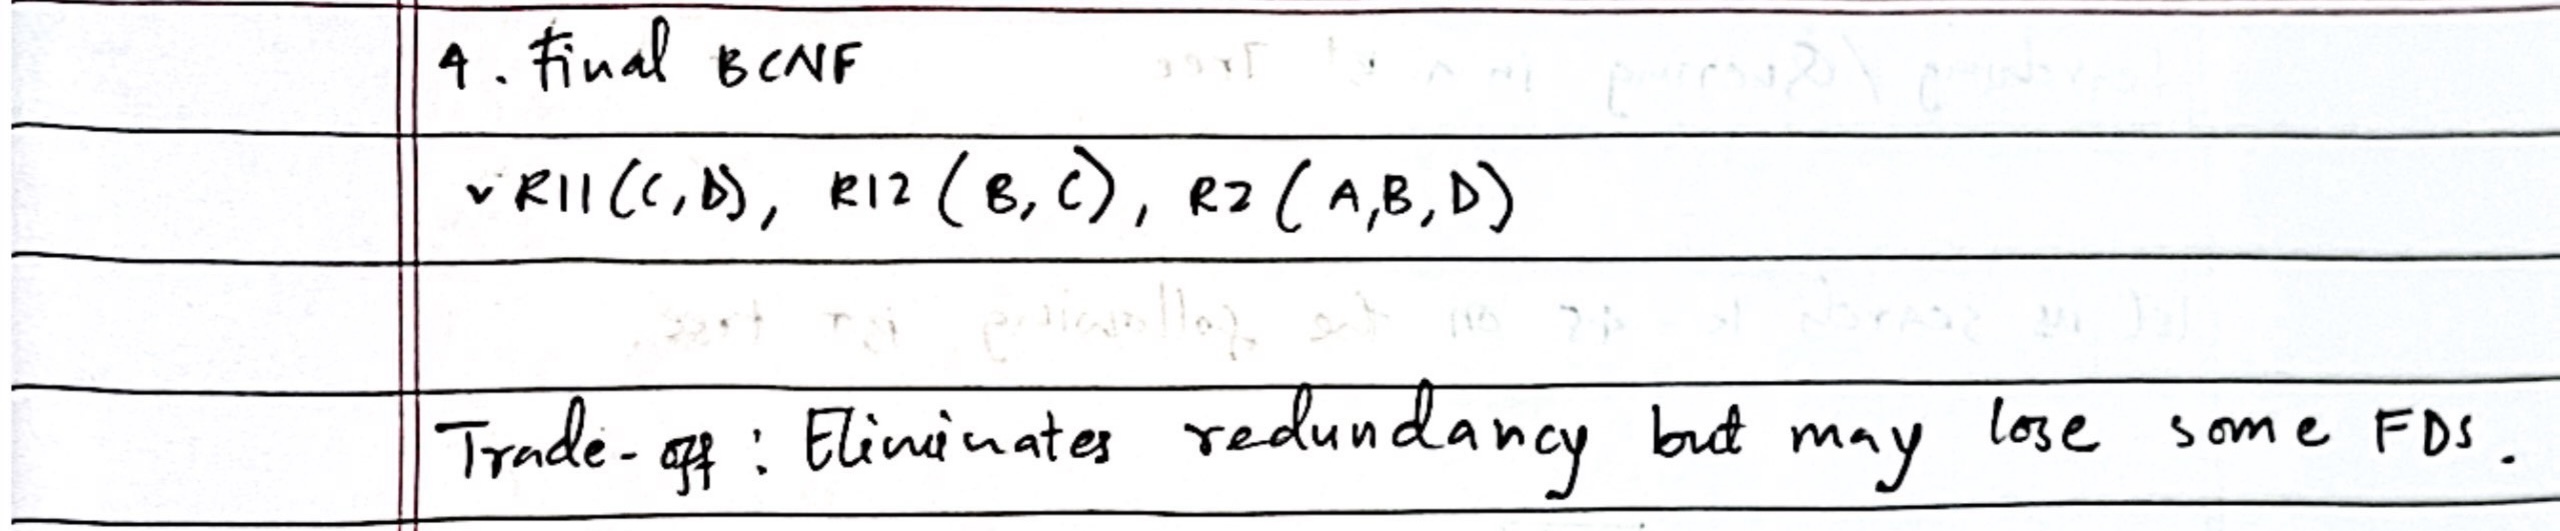 4. Final BCNF
✓ R11(C,D), R12 (B, C), R2 (A,B,D)
Trade-off : Eliminates redundancy but may lose some FDs.